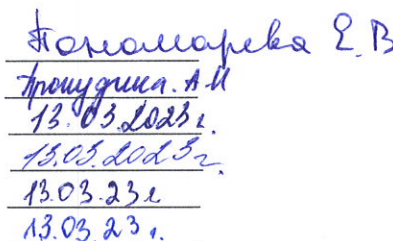 Пономарева Е.В
Пронудина. А И
13.03.2023 г.
13.03.2023 г.
13.03.23 г
13.03.23 г.